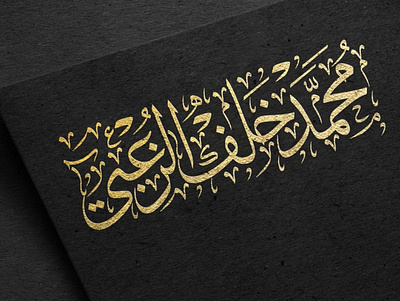 محمّد خلف الزعبي